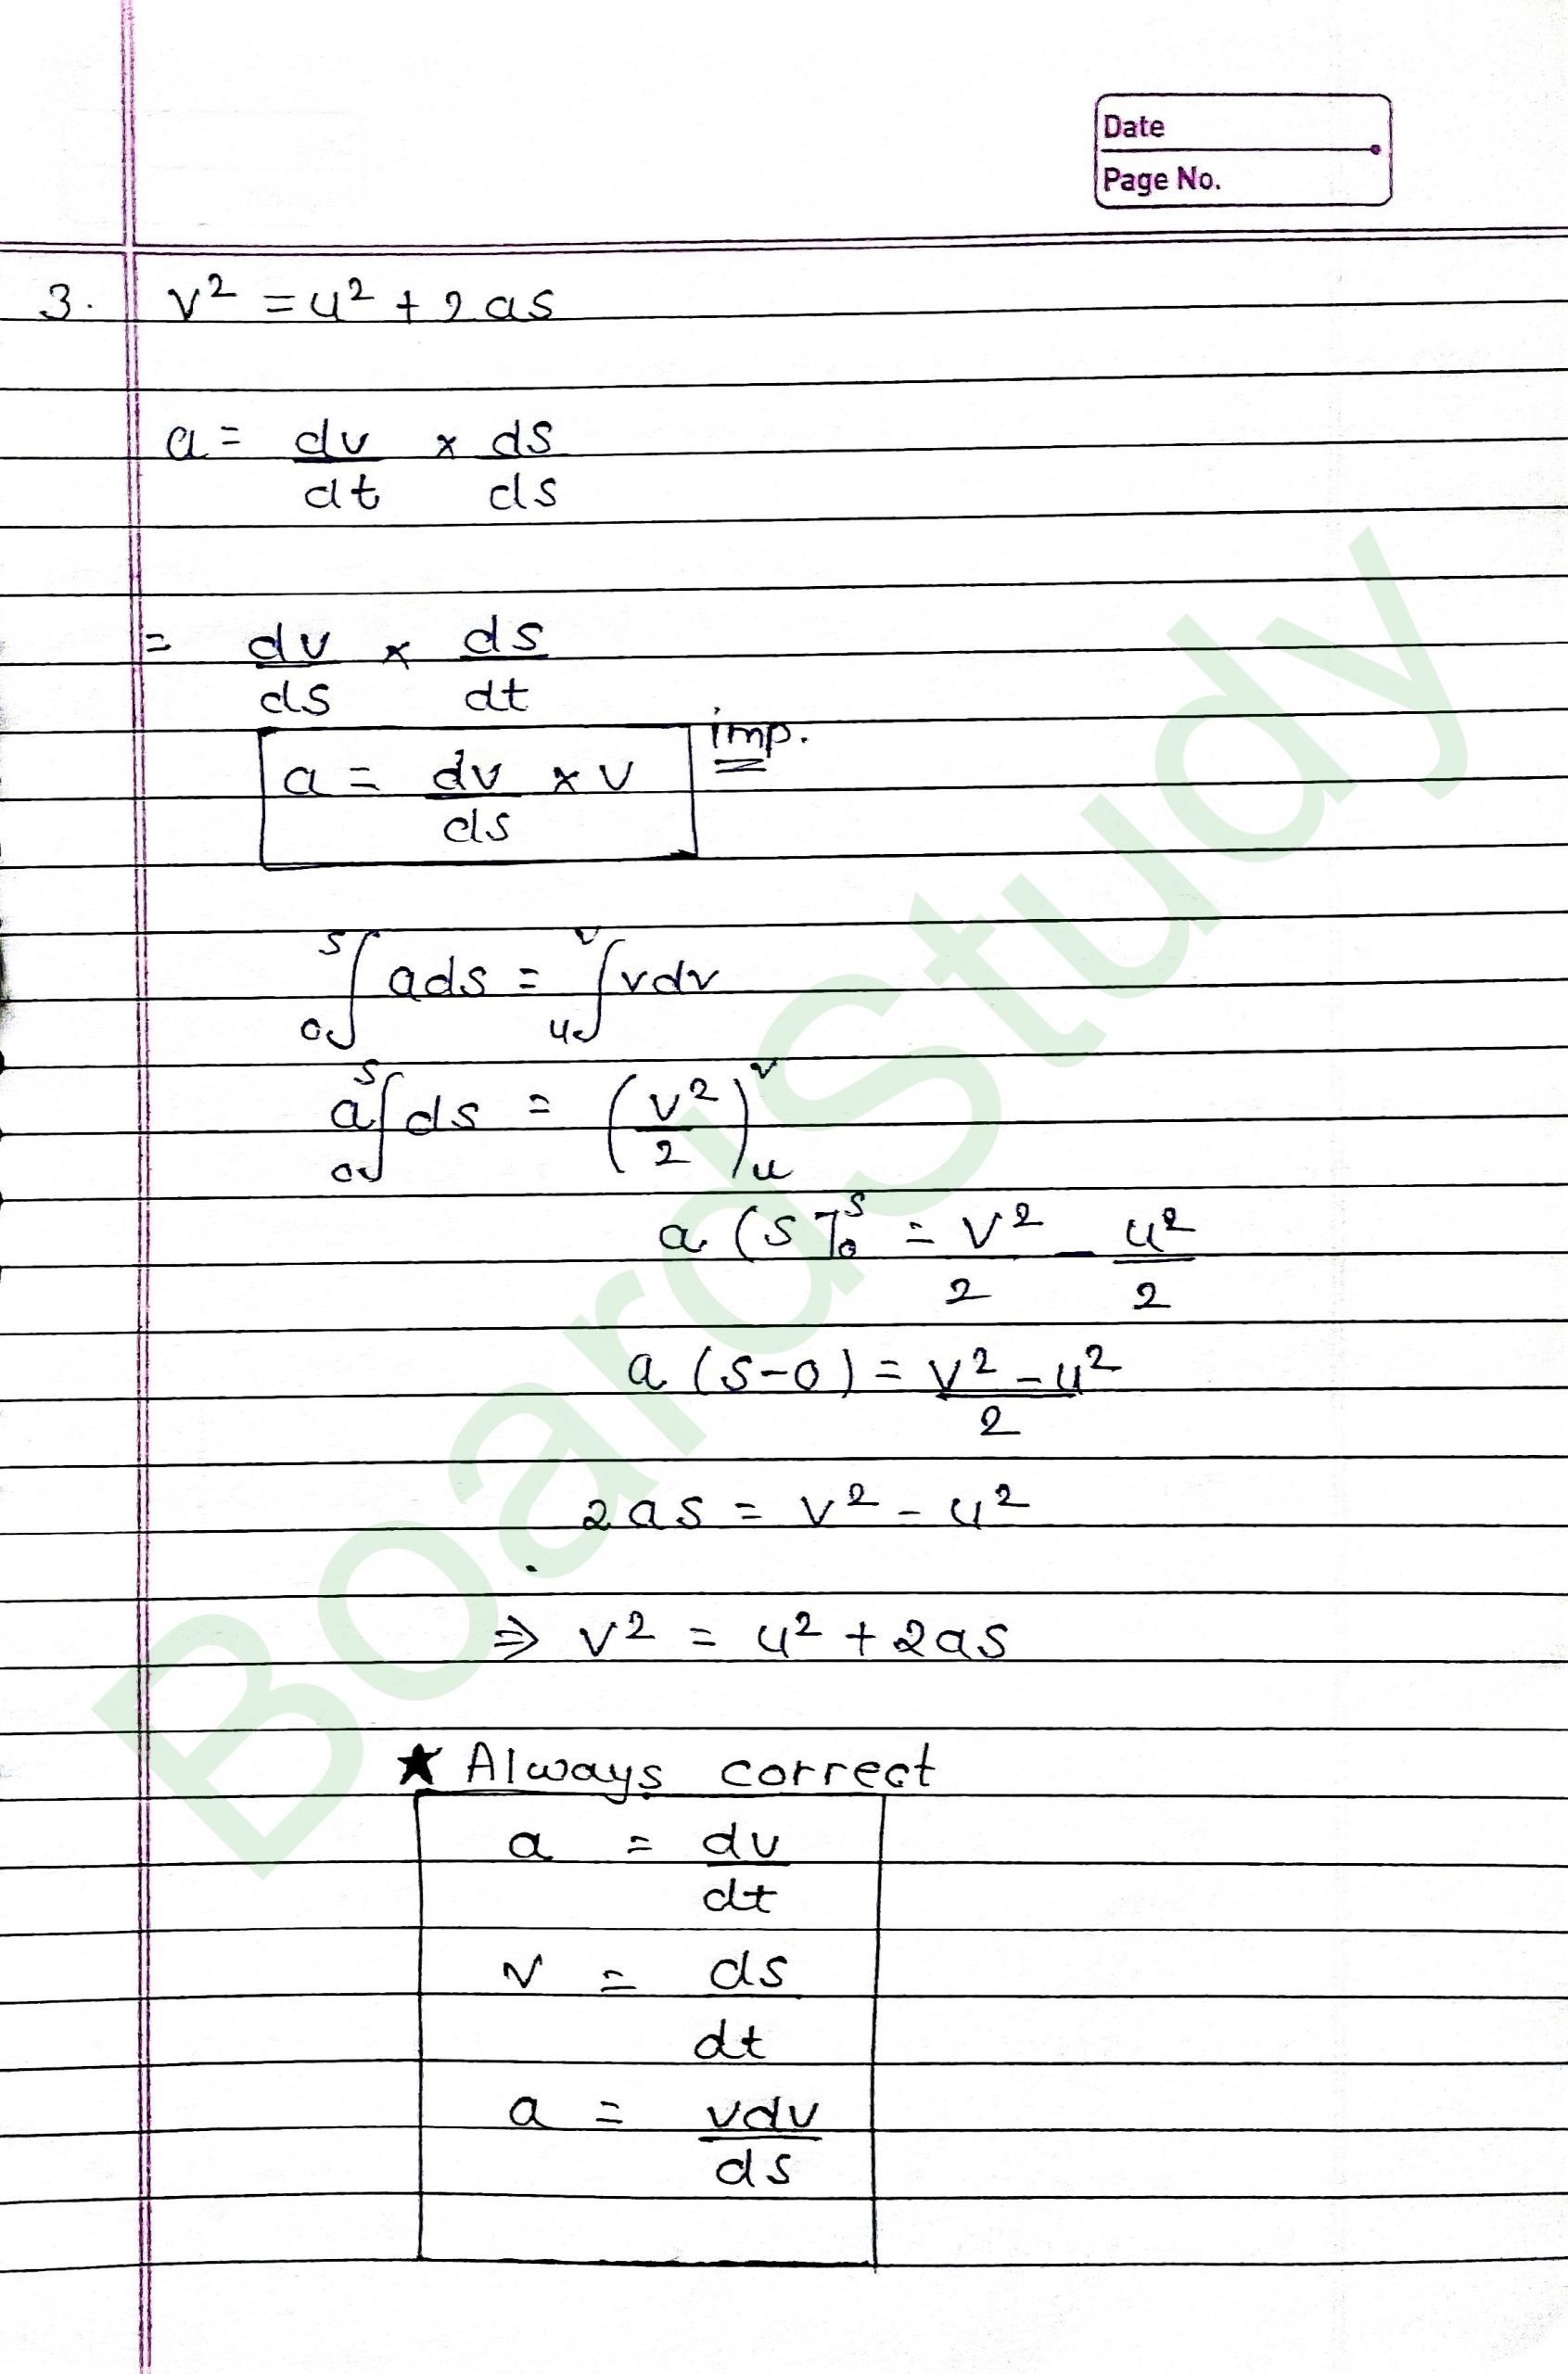 Date
Page No.
3. v² = u² + 2as
a = dv/dt × ds/ds
= dv/ds × ds/dt
a = dv/ds × v imp.
₀∫ˢ ads = ᵤ∫ᵛ vdv
a ₀∫ˢ ds = (v²/2)ᵛᵤ
a (s]ˢ₀ = v²/2 - u²/2
a (s-0) = v² - u²/2
2as = v² - u²
⇒ v² = u² + 2as
★ Always correct
a = dv/dt
v = ds/dt
a = vdv/ds
BoardStudy